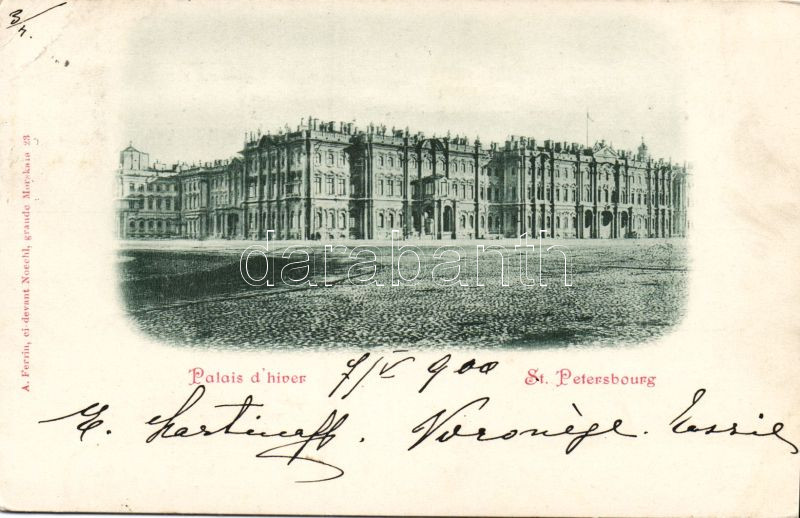 3/4.
A. Ferrin, ci-devant Noechl, grande Morskaia 23
darabanth
Palais d'hiver
7/IV 900
St. Petersbourg
E. Hartinoff. Voronège. Russie